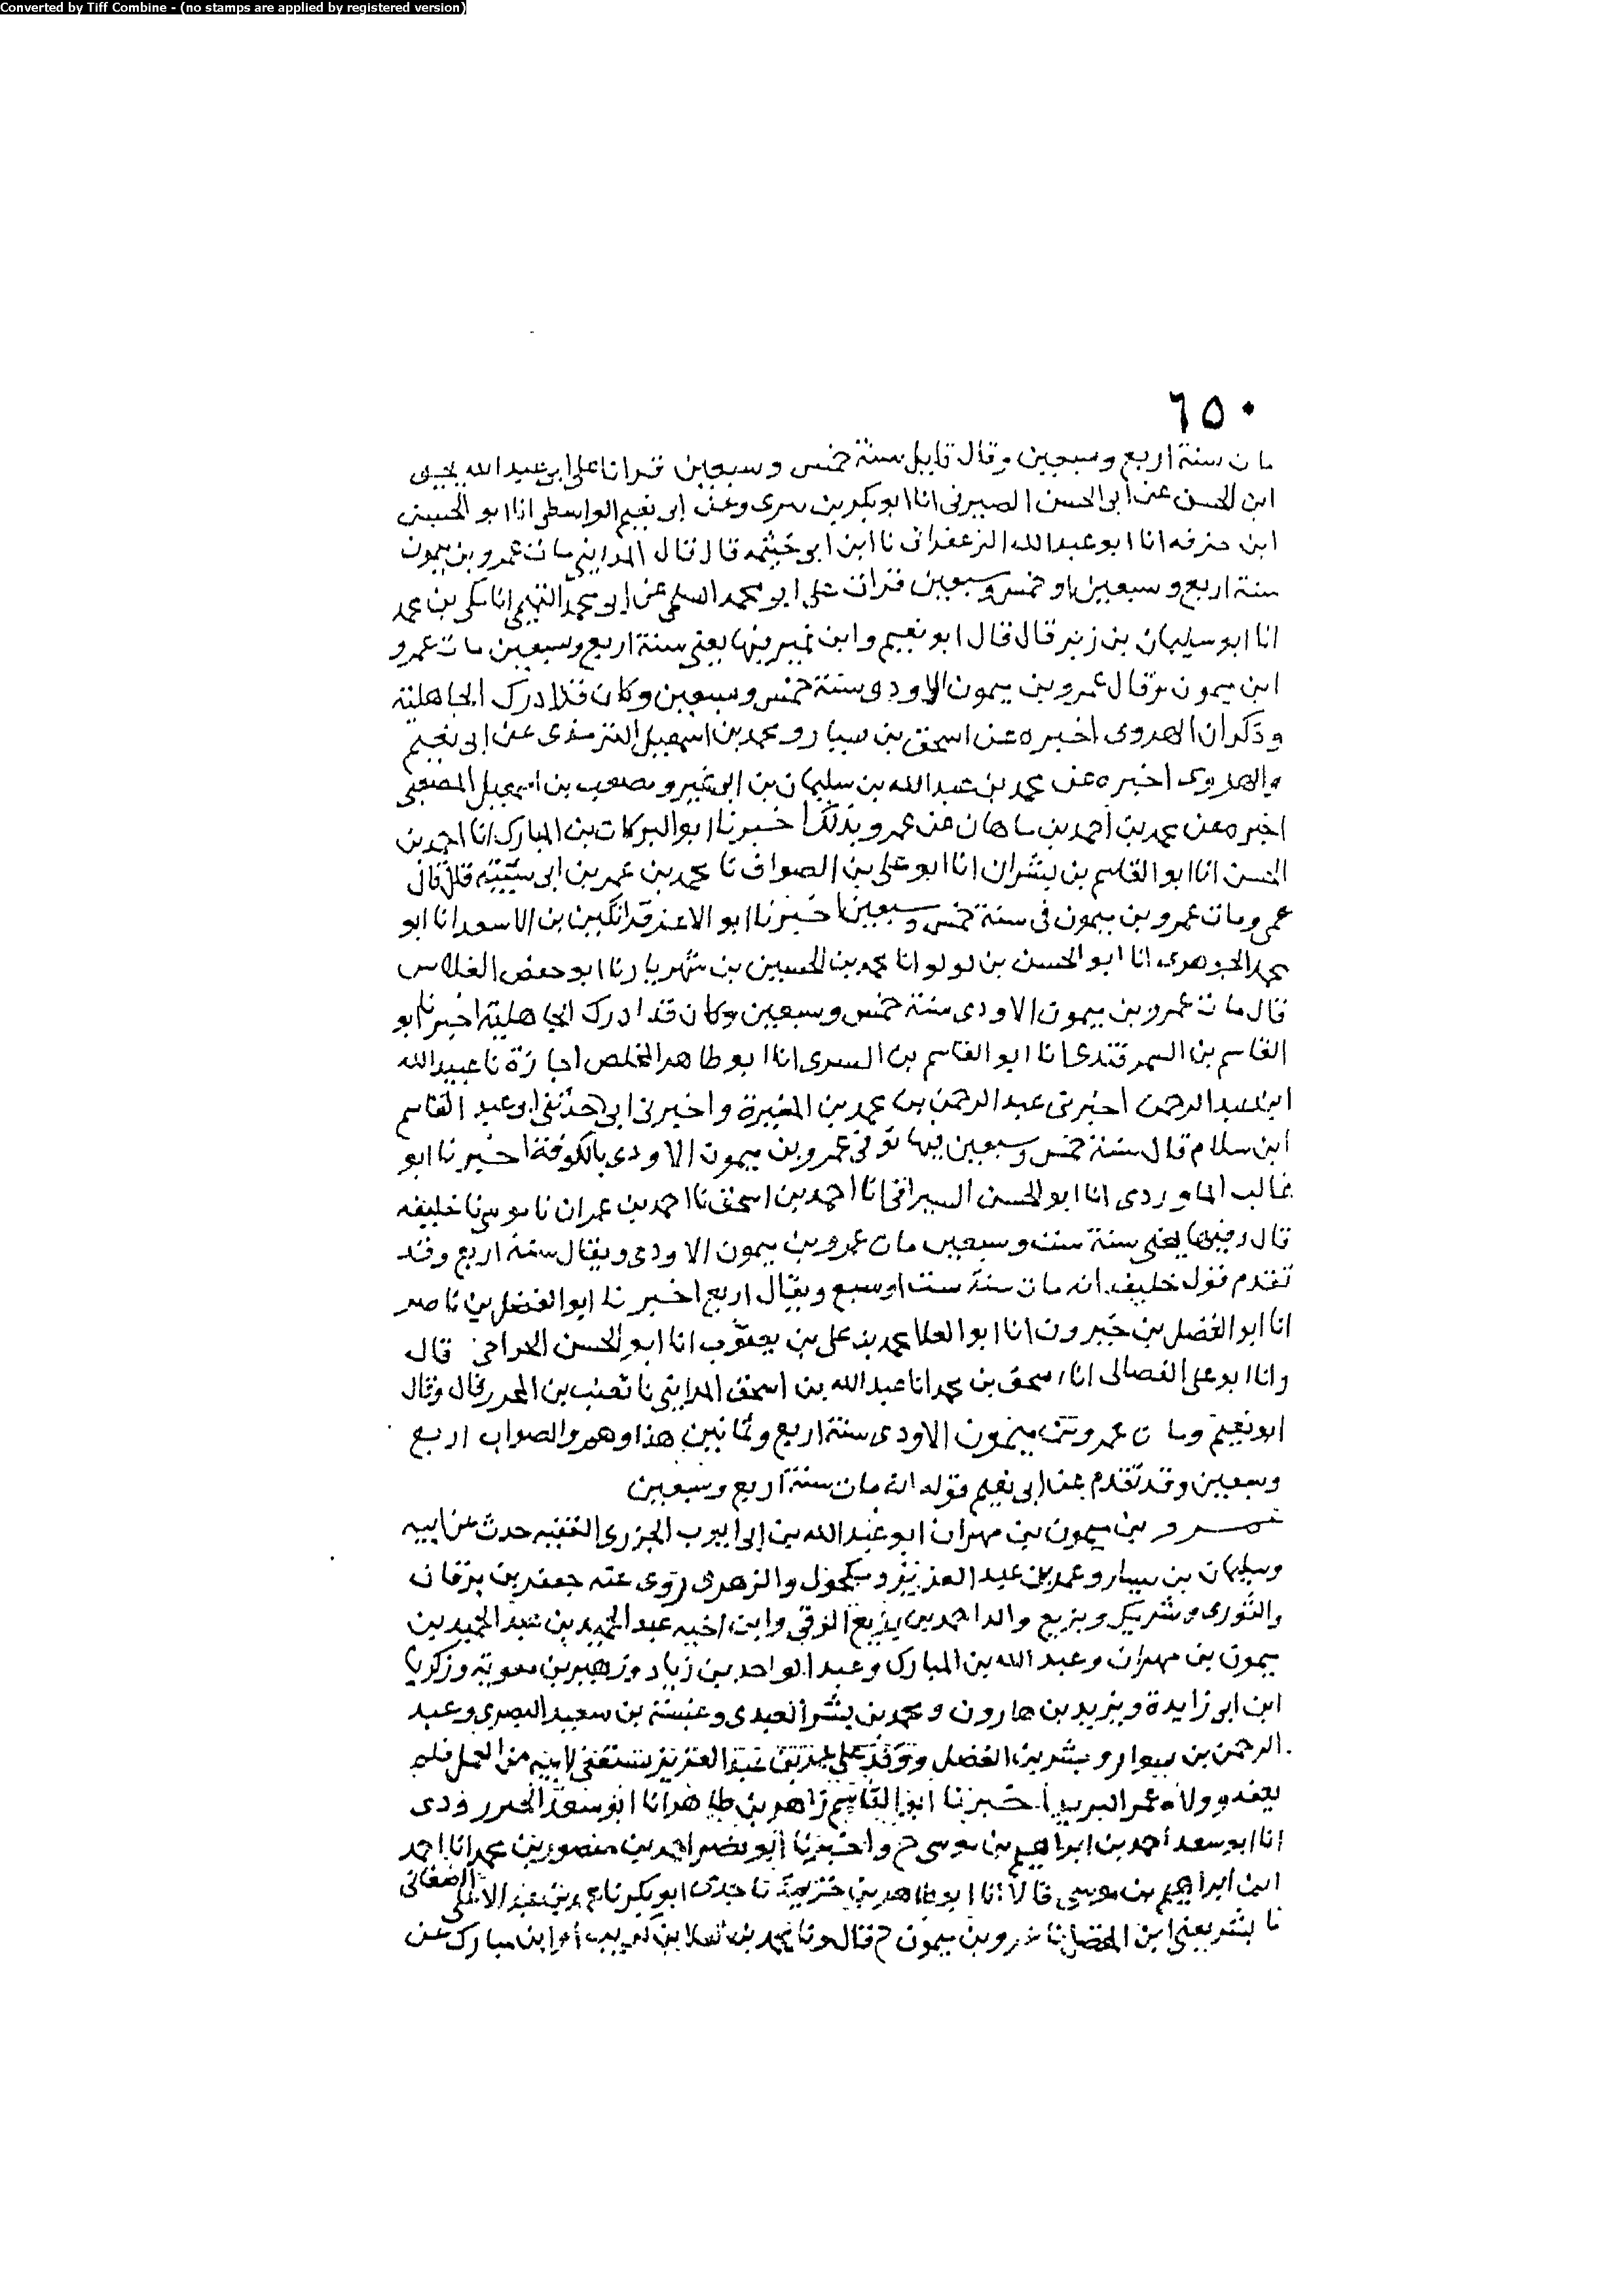 Converted by Tiff Combine - (no stamps are applied by registered version)
٦٥٠
مات سنة اربع وسبعين وقال قايل سنة خمس وسبعين قرانا على ابي عبد الله يحيى
ابن الحسن عن ابي الحسن الصيرفي انا ابو بكر بن سرى وعن ابي نعيم الواسطي انا ابو الحسين
ابن خزفه انا ابو عبد الله الزعفراني نا ابن ابي خيثمه قال قال المدايني مات عمرو بن ميمون
سنة اربع وسبعين او خمس وسبعين قرات على ابي محمد السلمي عن ابي محمد التميمي انا مكي بن محمد
انا ابو سليمان بن زبر قال قال ابو نعيم وابن نمير فيها يعني سنة اربع وسبعين مات عمرو
ابن ميمون ثم قال عمرو بن ميمون الاودي سنة خمس وسبعين وكان قد ادرك الجاهلية
وذكر ان الهروي اخبره عن اسحق بن سيار ومحمد بن اسمعيل الترمذي عن ابي نعيم
والهروي اخبره عن محمد بن عبد الله بن سليمان بن ابي نمير ومصعب بن اسمعيل المصيصي
اخبره عن محمد بن احمد بن ماهان عن عمرو بذلك اخبرنا ابو البركات بن المبارك انا احمد بن
الحسن انا ابو القاسم بن بشران انا ابو علي بن الصواف نا محمد بن عمر بن ابي شيبة قال قال
عمي ومات عمرو بن ميمون في سنة خمس وسبعين اخبرنا ابو الاعز قراتكين بن الاسعد انا ابو
محمد الجوهري انا ابو الحسن بن لولو انا محمد بن الحسين بن شهريار نا ابو حفص الفلاس
قال مات عمرو بن ميمون الاودي سنة خمس وسبعين وكان قد ادرك الجاهلية اخبرنا ابو
القاسم بن السمرقندي انا ابو القاسم بن السري انا ابو طاهر المخلص اجازة نا عبيد الله
ابن عبد الرحمن اخبرني عبد الرحمن بن محمد بن المغيرة واخبرني ابي حدثني ابو عبيد القاسم
ابن سلام قال سنة خمس وسبعين فيها توفي عمرو بن ميمون الاودي بالكوفة اخبرنا ابو
غالب الماوردي انا ابو الحسن السيرافي انا احمد بن اسحق نا احمد بن عمران نا موسى نا خليفه
قال وفيها يعني سنة ست وسبعين مات عمرو بن ميمون الاودي ويقال سنة اربع وقد
تقدم قول خليفه انه مات سنة ست او سبع ويقال اربع اخبرنا ابو الفضل بن ناصر
انا ابو الفضل بن خيرون انا ابو العلا محمد بن علي بن يعقوب انا ابو الحسن الجراحي قال
وانا ابو علي الفضالي انا اسحق بن محمد انا عبد الله بن اسحق المدايني نا قعنب بن المحرر قال وقال
ابو نعيم ومات عمرو بن ميمون الاودي سنة اربع وثمانين هذا وهم والصواب اربع
وسبعين وقد تقدم عن ابي نعيم قوله انه مات سنة اربع وسبعين
عمرو بن ميمون بن مهران ابو عبد الله بن ابي ايوب الجزري الفقيه حدث عن ابيه
وسليمان بن يسار وعمر بن عبد العزيز ومكحول والزهري روى عنه جعفر بن برقان
والثوري وشريك وبزيع والد احمد بن بزيع الرقي وابن اخيه عبد الحميد بن عبد الحميد بن
ميمون بن مهران وعبد الله بن المبارك وعبد الواحد بن زياد وزهير بن معوية وزكريا
ابن ابي زايدة ويزيد بن هارون ومحمد بن بشر العبدي وعنبسة بن سعيد البصري وعبد
الرحمن بن سوار وبشر بن المفضل ووفد على عمر بن عبد العزيز يستعفي لابيه من العمل فلم
يعفه وولاه عمر البريد اخبرنا ابو القاسم زاهر بن طاهر انا ابو سعد الجنزرودي
انا ابو سعد احمد بن ابراهيم بن موسى ح واخبرنا ابو نصر احمد بن منصور بن محمد انا احمد
ابن ابراهيم بن موسى قالا انا ابو طاهر بن خزيمة نا جدي ابو بكر نا محمد بن عبد الاعلى الصنعاني
نا بشر يعني ابن المفضل نا عمرو بن ميمون ح قال ونا محمد بن العلا بن كريب انا ابن مبارك عن